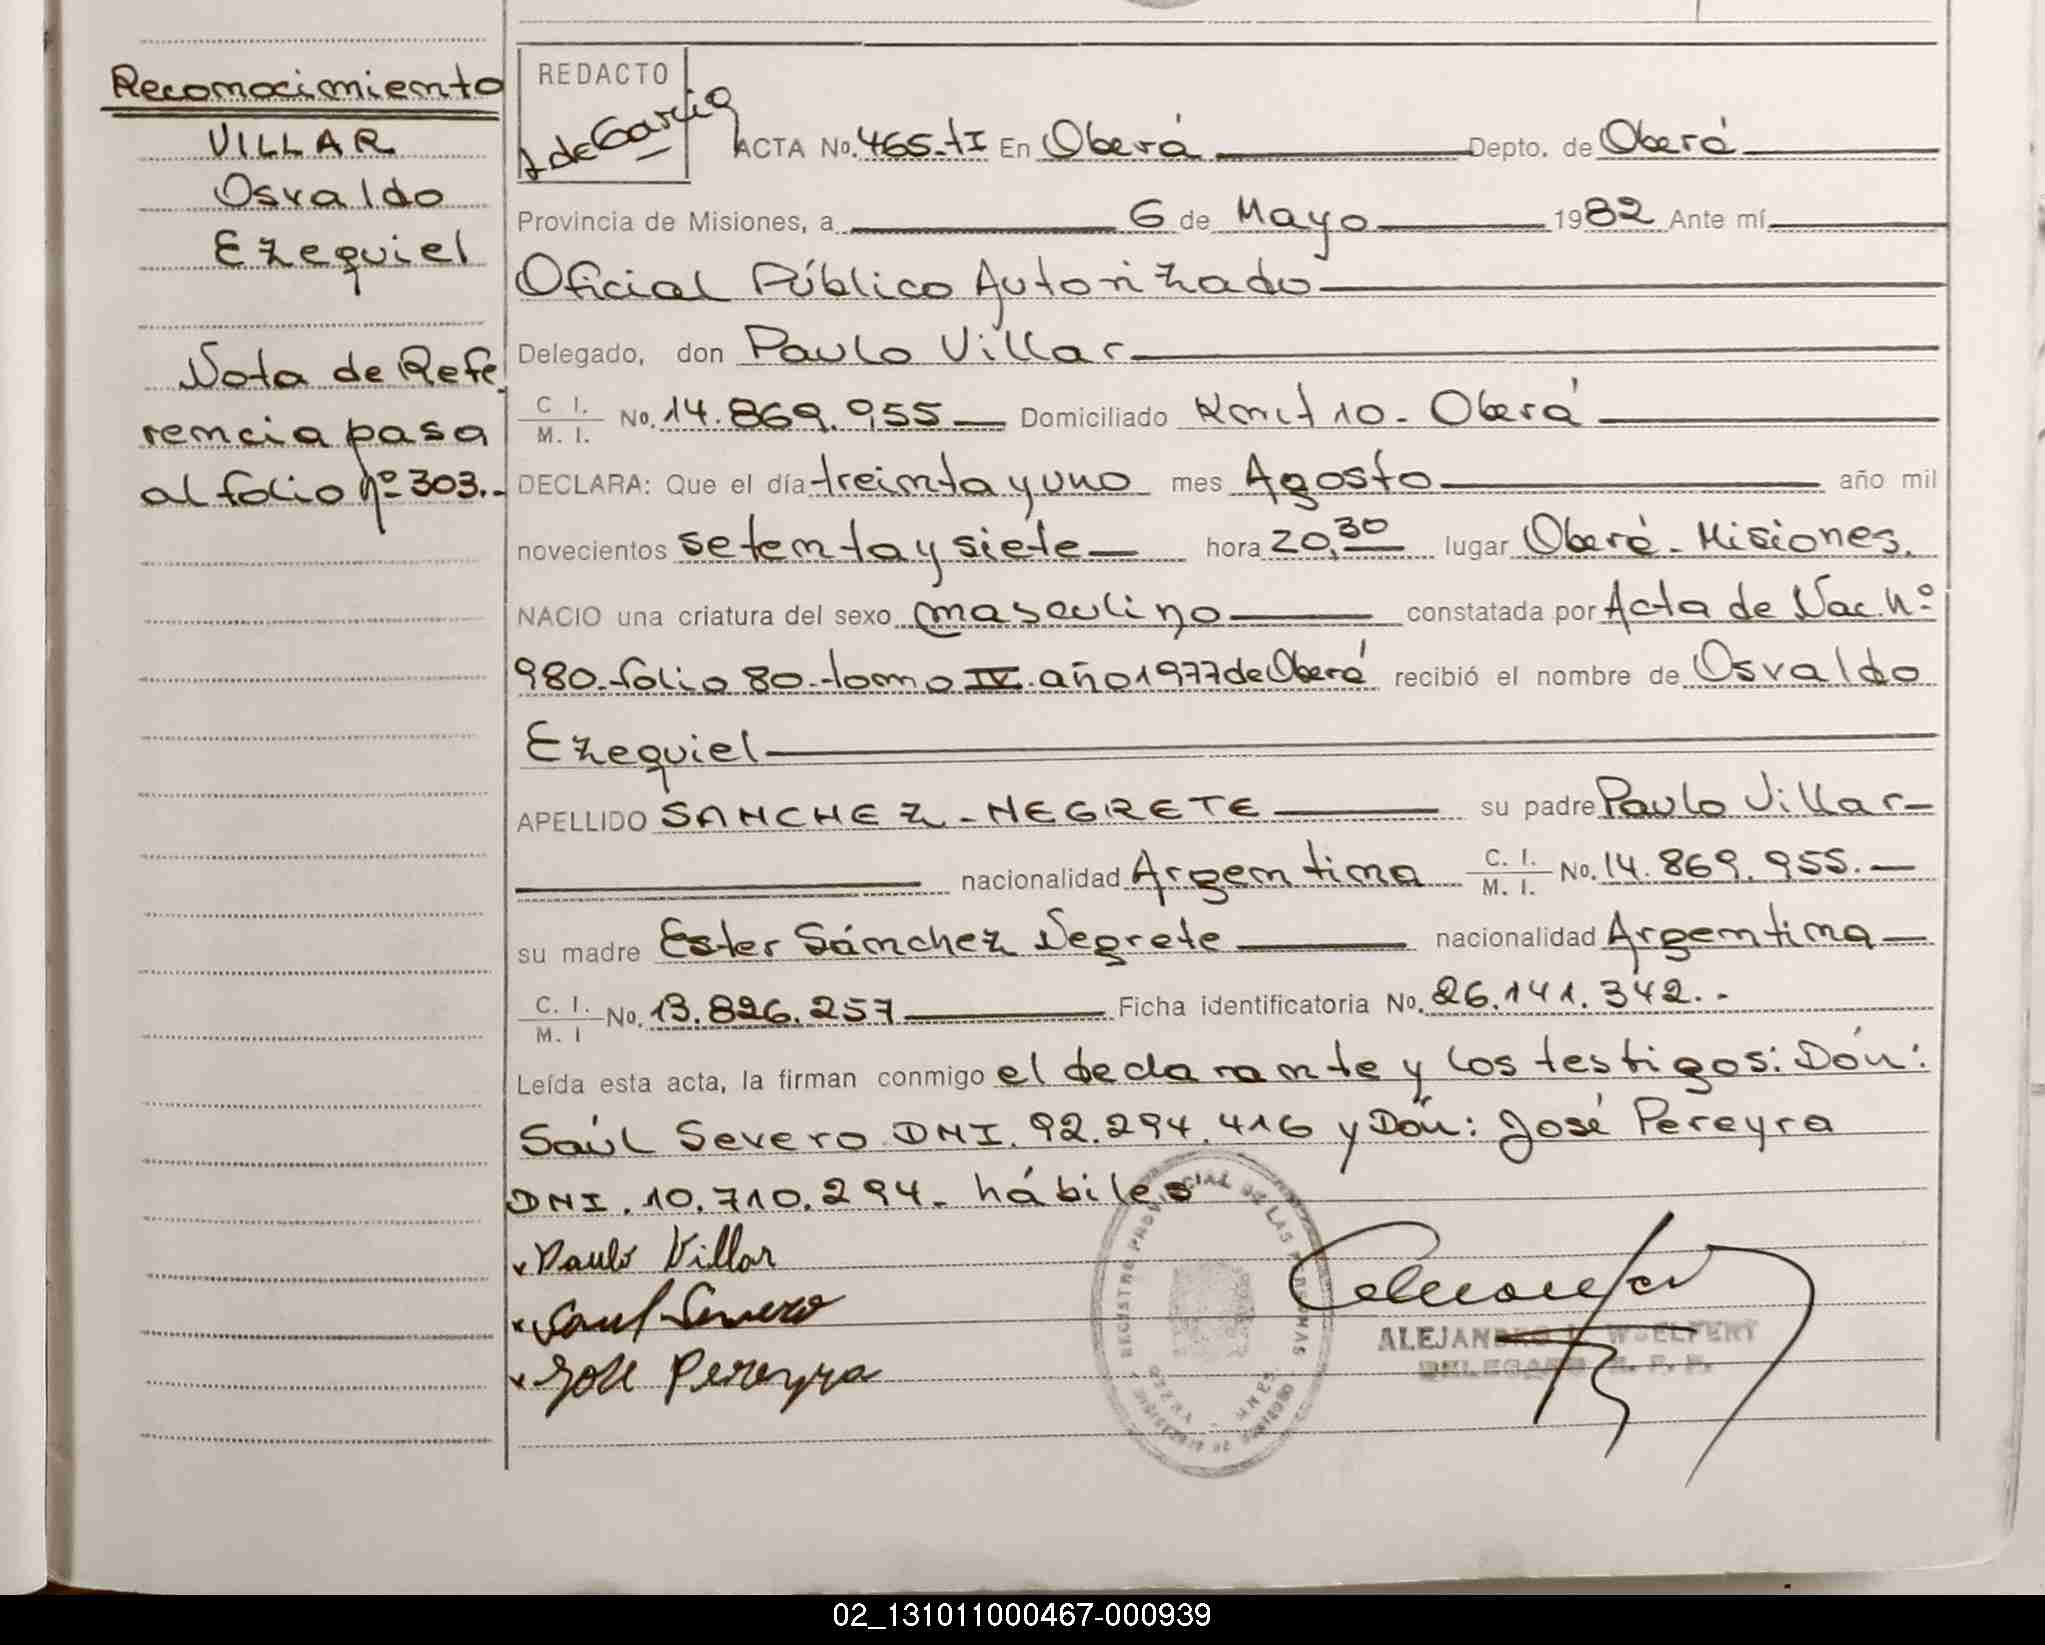 Reconocimiento
VILLAR
Osvaldo
Ezequiel
Nota de Refe
rencia pasa
al folio nº 303.-
REDACTO
de Garcia
ACTA No. 465-tI En Oberá Depto. de Oberá
Provincia de Misiones, a 6 de Mayo 1982 Ante mí
Oficial Público Autorizado
Delegado, don Paulo Villar
C I. M. I. No. 14.869.955 Domiciliado Kmt 10 - Oberá
DECLARA: Que el día treinta y uno mes Agosto año mil
novecientos setenta y siete hora 20,30 lugar Oberá - Misiones.
NACIO una criatura del sexo masculino constatada por Acta de Nac. Nº
980-folio 80-tomo IV-año 1977 de Oberá recibió el nombre de Osvaldo
Ezequiel
APELLIDO SANCHEZ - NEGRETE su padre Paulo Villar
nacionalidad Argentina C. I. M. I. No. 14.869.955.
su madre Ester Sánchez Negrete nacionalidad Argentina
C. I. M. I No. 13.826.257 Ficha identificatoria No. 26.141.342.-
Leída esta acta, la firman conmigo el declarante y los testigos: Dón:
Saúl Severo DNI. 92.294.416 y Dón: José Pereyra
DNI. 10.710.294- hábiles
x Paulo Villar
x Saul Severo
x José Pereyra
REGISTRO PROVINCIAL DE LAS PERSONAS
ALEJANDRO WOELFERT
DELEGADO R. P. P.
02_131011000467-000939